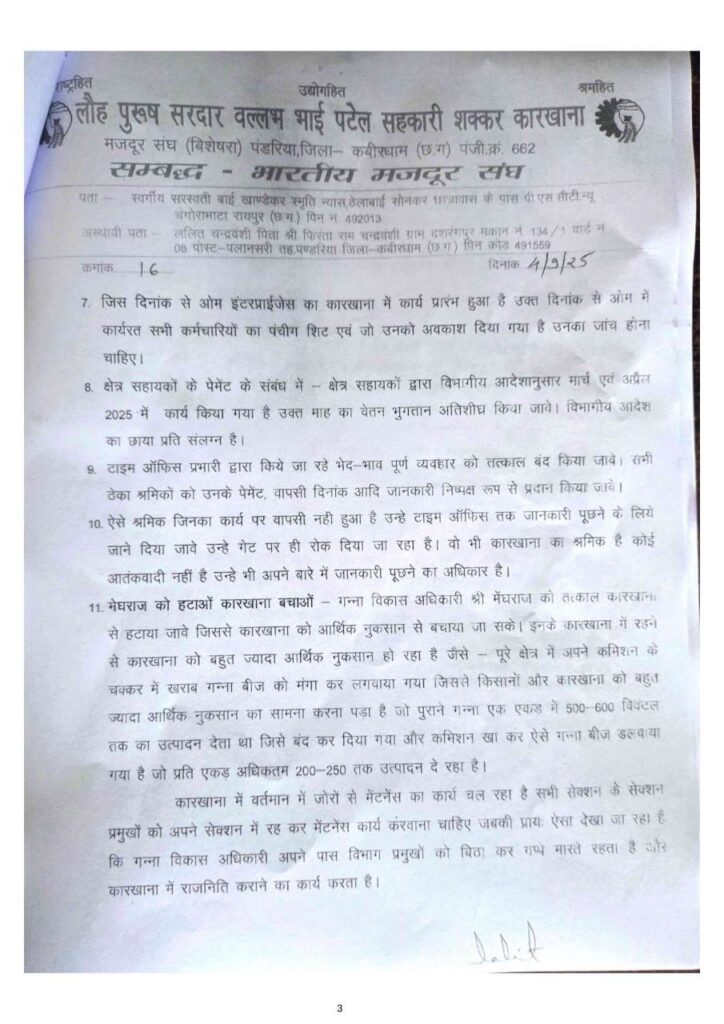 राष्ट्रहित उद्योगहित श्रमहित
लौह पुरूष सरदार वल्लभ भाई पटेल सहकारी शक्कर कारखाना
मजदूर संघ (विशेषरा) पंडरिया,जिला– कबीरधाम (छ.ग) पंजी.क्रं. 662
सम्बद्ध - भारतीय मजदूर संघ
पता – स्वर्गीय सरस्वती बाई खाण्डेकर स्मृति न्यास,ठेलाबाई सोनकर छात्रावास के पास पी एस सीटी.न्यू
चंगोराभाटा रायपुर (छ.ग) पिन नं 492013
अस्थायी पता – ललित चन्द्रवंशी पिता श्री फिरता राम चन्द्रवंशी ग्राम दशरंगपुर मकान नं. 134/1 वार्ड नं
08 पोस्ट–पलानसरी तह.पण्डरिया जिला–कबीरधाम (छ.ग) पिन कोड 491559
कमांक 16 दिनांक 4/9/25
7. जिस दिनांक से ओम इंटरप्राईजेस का कारखाना में कार्य प्रारंभ हुआ है उक्त दिनांक से ओम में
कार्यरत सभी कर्मचारियों का पंचीग शिट एवं जो उनको अवकाश दिया गया है उनका जांच होना
चाहिए।
8. क्षेत्र सहायकों के पेमेंट के संबंध में – क्षेत्र सहायकों द्वारा विभागीय आदेशानुसार मार्च एवं अप्रैल
2025 में कार्य किया गया है उक्त माह का वेतन भुगतान अतिशीघ्र किया जावे। विभागीय आदेश
का छाया प्रति संलग्न है।
9. टाइम ऑफिस प्रभारी द्वारा किये जा रहे भेद–भाव पूर्ण व्यवहार को तत्काल बंद किया जावे। सभी
ठेका श्रमिकों को उनके पेमेंट, वापसी दिनांक आदि जानकारी निष्पक्ष रूप से प्रदान किया जावे।
10. ऐसे श्रमिक जिनका कार्य पर वापसी नही हुआ है उन्हे टाइम ऑफिस तक जानकारी पूछने के लिये
जाने दिया जावे उन्हे गेट पर ही रोक दिया जा रहा है। वो भी कारखाना का श्रमिक है कोई
आतंकवादी नहीं है उन्हे भी अपने बारे में जानकारी पूछने का अधिकार है।
11. मेघराज को हटाओं कारखाना बचाओं – गन्ना विकास अधिकारी श्री मेंघराज को तत्काल कारखाना
से हटाया जावे जिससे कारखाना को आर्थिक नुकसान से बचाया जा सके। इनके कारखाना में रहने
से कारखाना को बहुत ज्यादा आर्थिक नुकसान हो रहा है जैसे – पूरे क्षेत्र में अपने कमिशन के
चक्कर में खराब गन्ना बीज को मंगा कर लगवाया गया जिससे किसानों और कारखाना को बहुत
ज्यादा आर्थिक नुकसान का सामना करना पड़ा है जो पुराने गन्ना एक एकड़ में 500–600 क्विंटल
तक का उत्पादन देता था जिसे बंद कर दिया गया और कमिशन खा कर ऐसे गन्ना बीज डलवाया
गया है जो प्रति एकड़ अधिकतम 200–250 तक उत्पादन दे रहा है।
कारखाना में वर्तमान में जोरों से मेंटनेंस का कार्य चल रहा है सभी सेक्शन के सेक्शन
प्रमुखों को अपने सेक्शन में रह कर मेंटनेंस कार्य करवाना चाहिए जबकी प्रायः ऐसा देखा जा रहा है
कि गन्ना विकास अधिकारी अपने पास विभाग प्रमुखों को बिठा कर गप्पे मारते रहता है और
कारखाना में राजनिति कराने का कार्य करता है।
Lalit
3